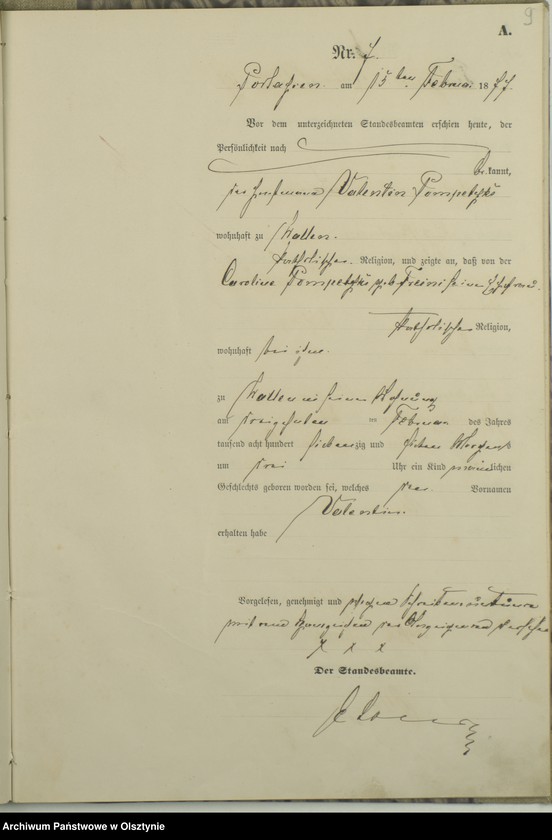 9
A.
Nr. 7.
am 15 ten Februar 1877.
Vor dem unterzeichneten Standesbeamten erschien heute, der
Persönlichkeit nach
bekannt,
der Valentin Pompetzki
wohnhaft zu Wallen.
katholischer Religion, und zeigte an, daß von der
Caroline Pompetzki geb. seiner Ehefrau.
katholischer Religion,
wohnhaft bei ihm.
zu Wallen in seiner Wohnung
am dreizehnten ten Februar des Jahres
tausend acht hundert siebenzig und sieben Morgens
um drei Uhr ein Kind männlichen
Geschlechts geboren worden sei, welches den Vornamen
Valentin.
erhalten habe
Vorgelesen, genehmigt und wegen
mit dem Handzeichen des Anzeigenden versehen
x x x
Der Standesbeamte.
Archiwum Państwowe w Olsztynie